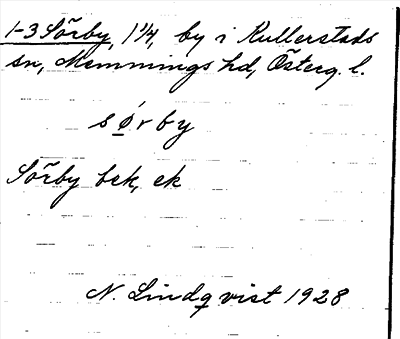 1-3 Sörby, 1 1/4, by i Kullerstads
sn, Memmings hd, Österg. l.
sø̀rby
Sörby bek, ek
N. Lindqvist 1928